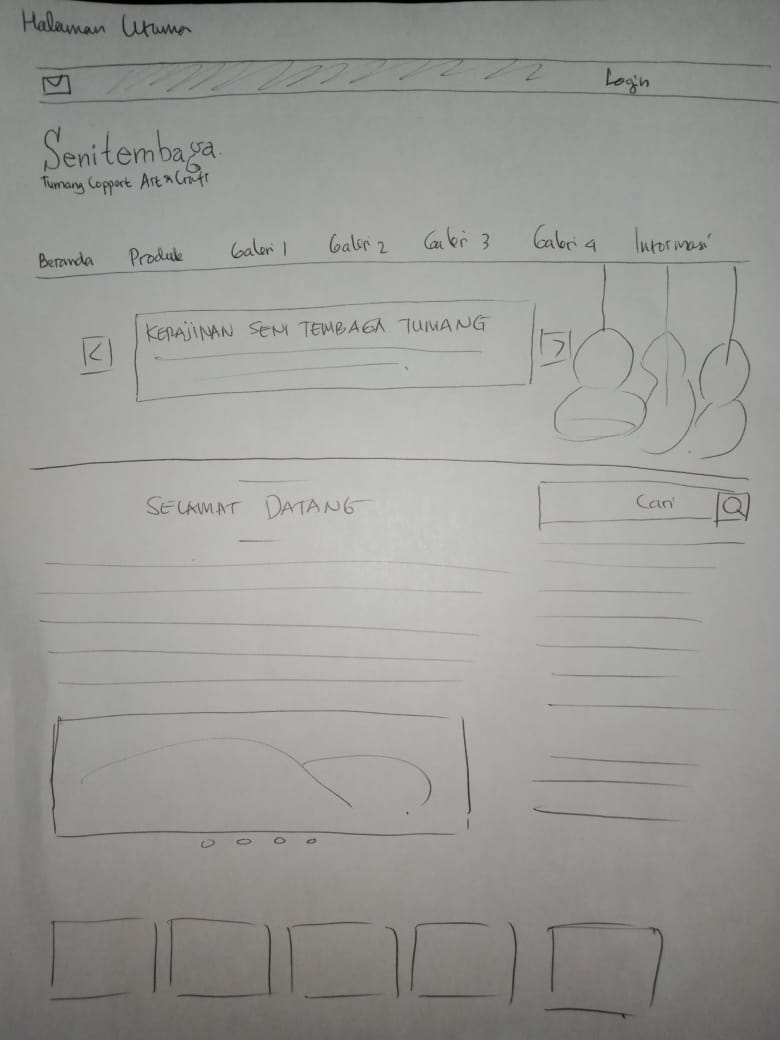 Halaman Utama
Login
Senitembaga
Tumang Copport Art & Craft
Beranda Produk Galeri 1 Galeri 2 Galeri 3 Galeri 4 Informasi
KERAJINAN SENI TEMBAGA TUMANG
SELAMAT DATANG
Cari